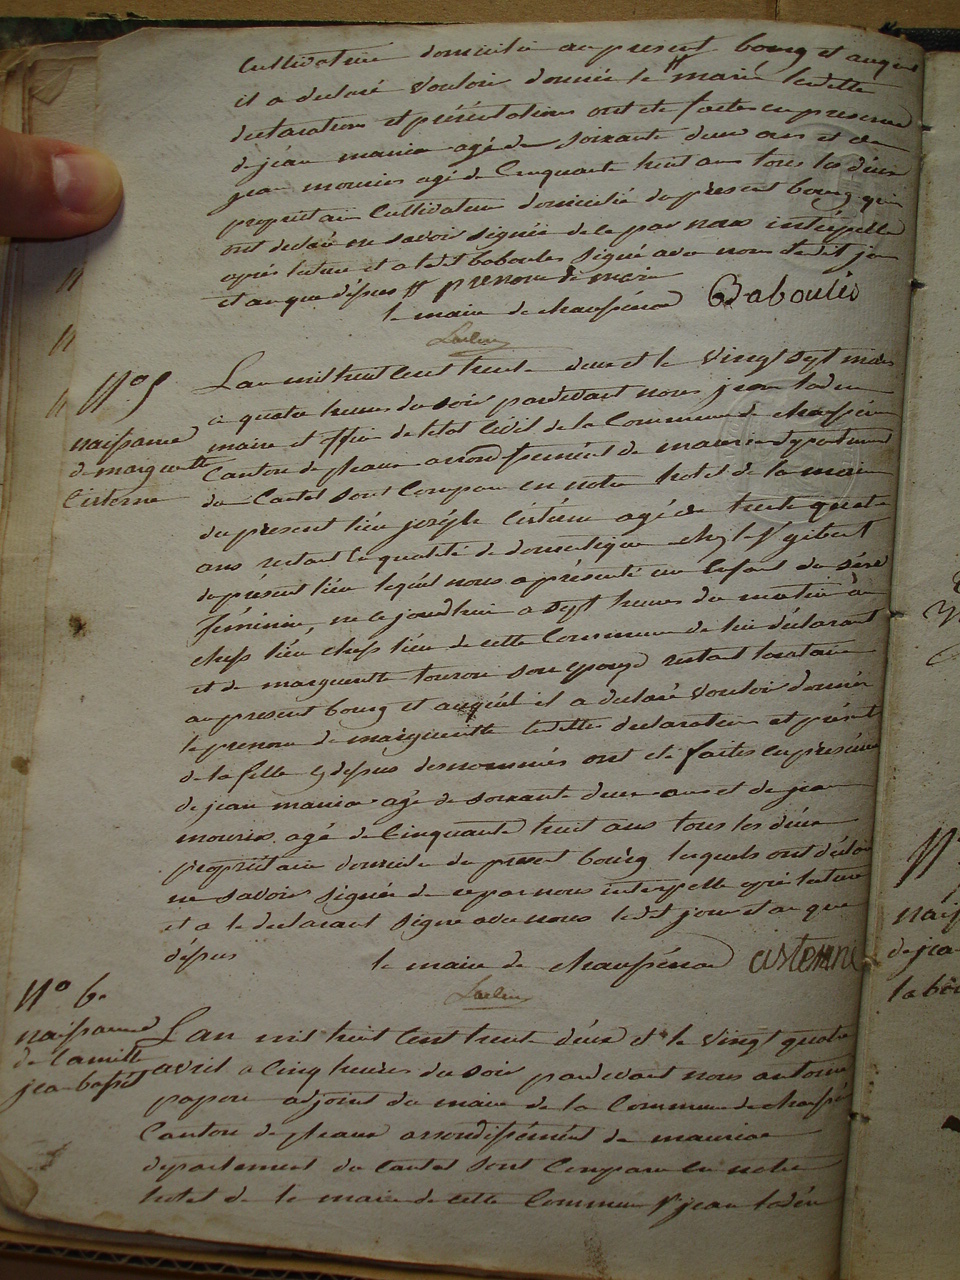 Cultivateur domicilié au present bourg et auquel
il a declaré vouloir donnér le # marie ladite
declaration et présentations ont été faites en presence
de jean mania agé de soixante deux ans et de
jean mourin agé de Cinquante huit ans tous les deux
propriétaire Cultivateur domicilié du present bourg qui
ont declaré ne savoir signér de ce par nous intérpellé
aprés lecture et a ledit baboules signé avec nous ledit jour
et an que déssus # prenom de marie
le maire de chaussénac Baboulés
N° 5
naissance
de marguerite
Cisterne
Lan mil huit cent trente deux et le vingt sept mars
a quatre heures du soir pardevant nous jean
maire et officier de létat Civil de la Commune de chaussénac
Canton de pleaux arrondissément de mauriac departement
du Cantal sont Comparu en notre hotel de la mairie
du present lieu joséph Cistérne agé de trente quatre
ans restant en qualité de domestique chez le Sr gibert
du présent lieu lequel nous a présenté un Enfant du séxe
féminin, né ce jourdhui a sept heures du matin au
chefs lieu chefs lieu de cette Commune de lui déclarant
et de marguerite son epouse restant locataire
au present bourg et auquél il a declaré vouloir donnér
le prenom de marguerite ladite declaration et présent
de la fille cy dessus denommés ont été faites en presence
de jean mania agé de soixante deux ans et de jean
mourin agé de Cinquante huit ans tous les deux
propriétaire domicilié du present bourg lesquels ont declaré
ne savoir signér de ce par nous interpellé apré lecture
et a le declarant signé avec nous ledit jour et an que
déssus
le maire de chaussénac cisterne
N° 6
naissance
de Camille
jean batist
Lan mil huit Cent trente deux et le vingt quatre
avril a Cinq heures du soir pardevant nous antoine
papon adjoint du maire de la Commune de chaussénac
Canton de pleaux arrondissémént de mauriac
departement du Cantal sont Comparu en notre
hotel de la mairie de cette Commune Sr jean